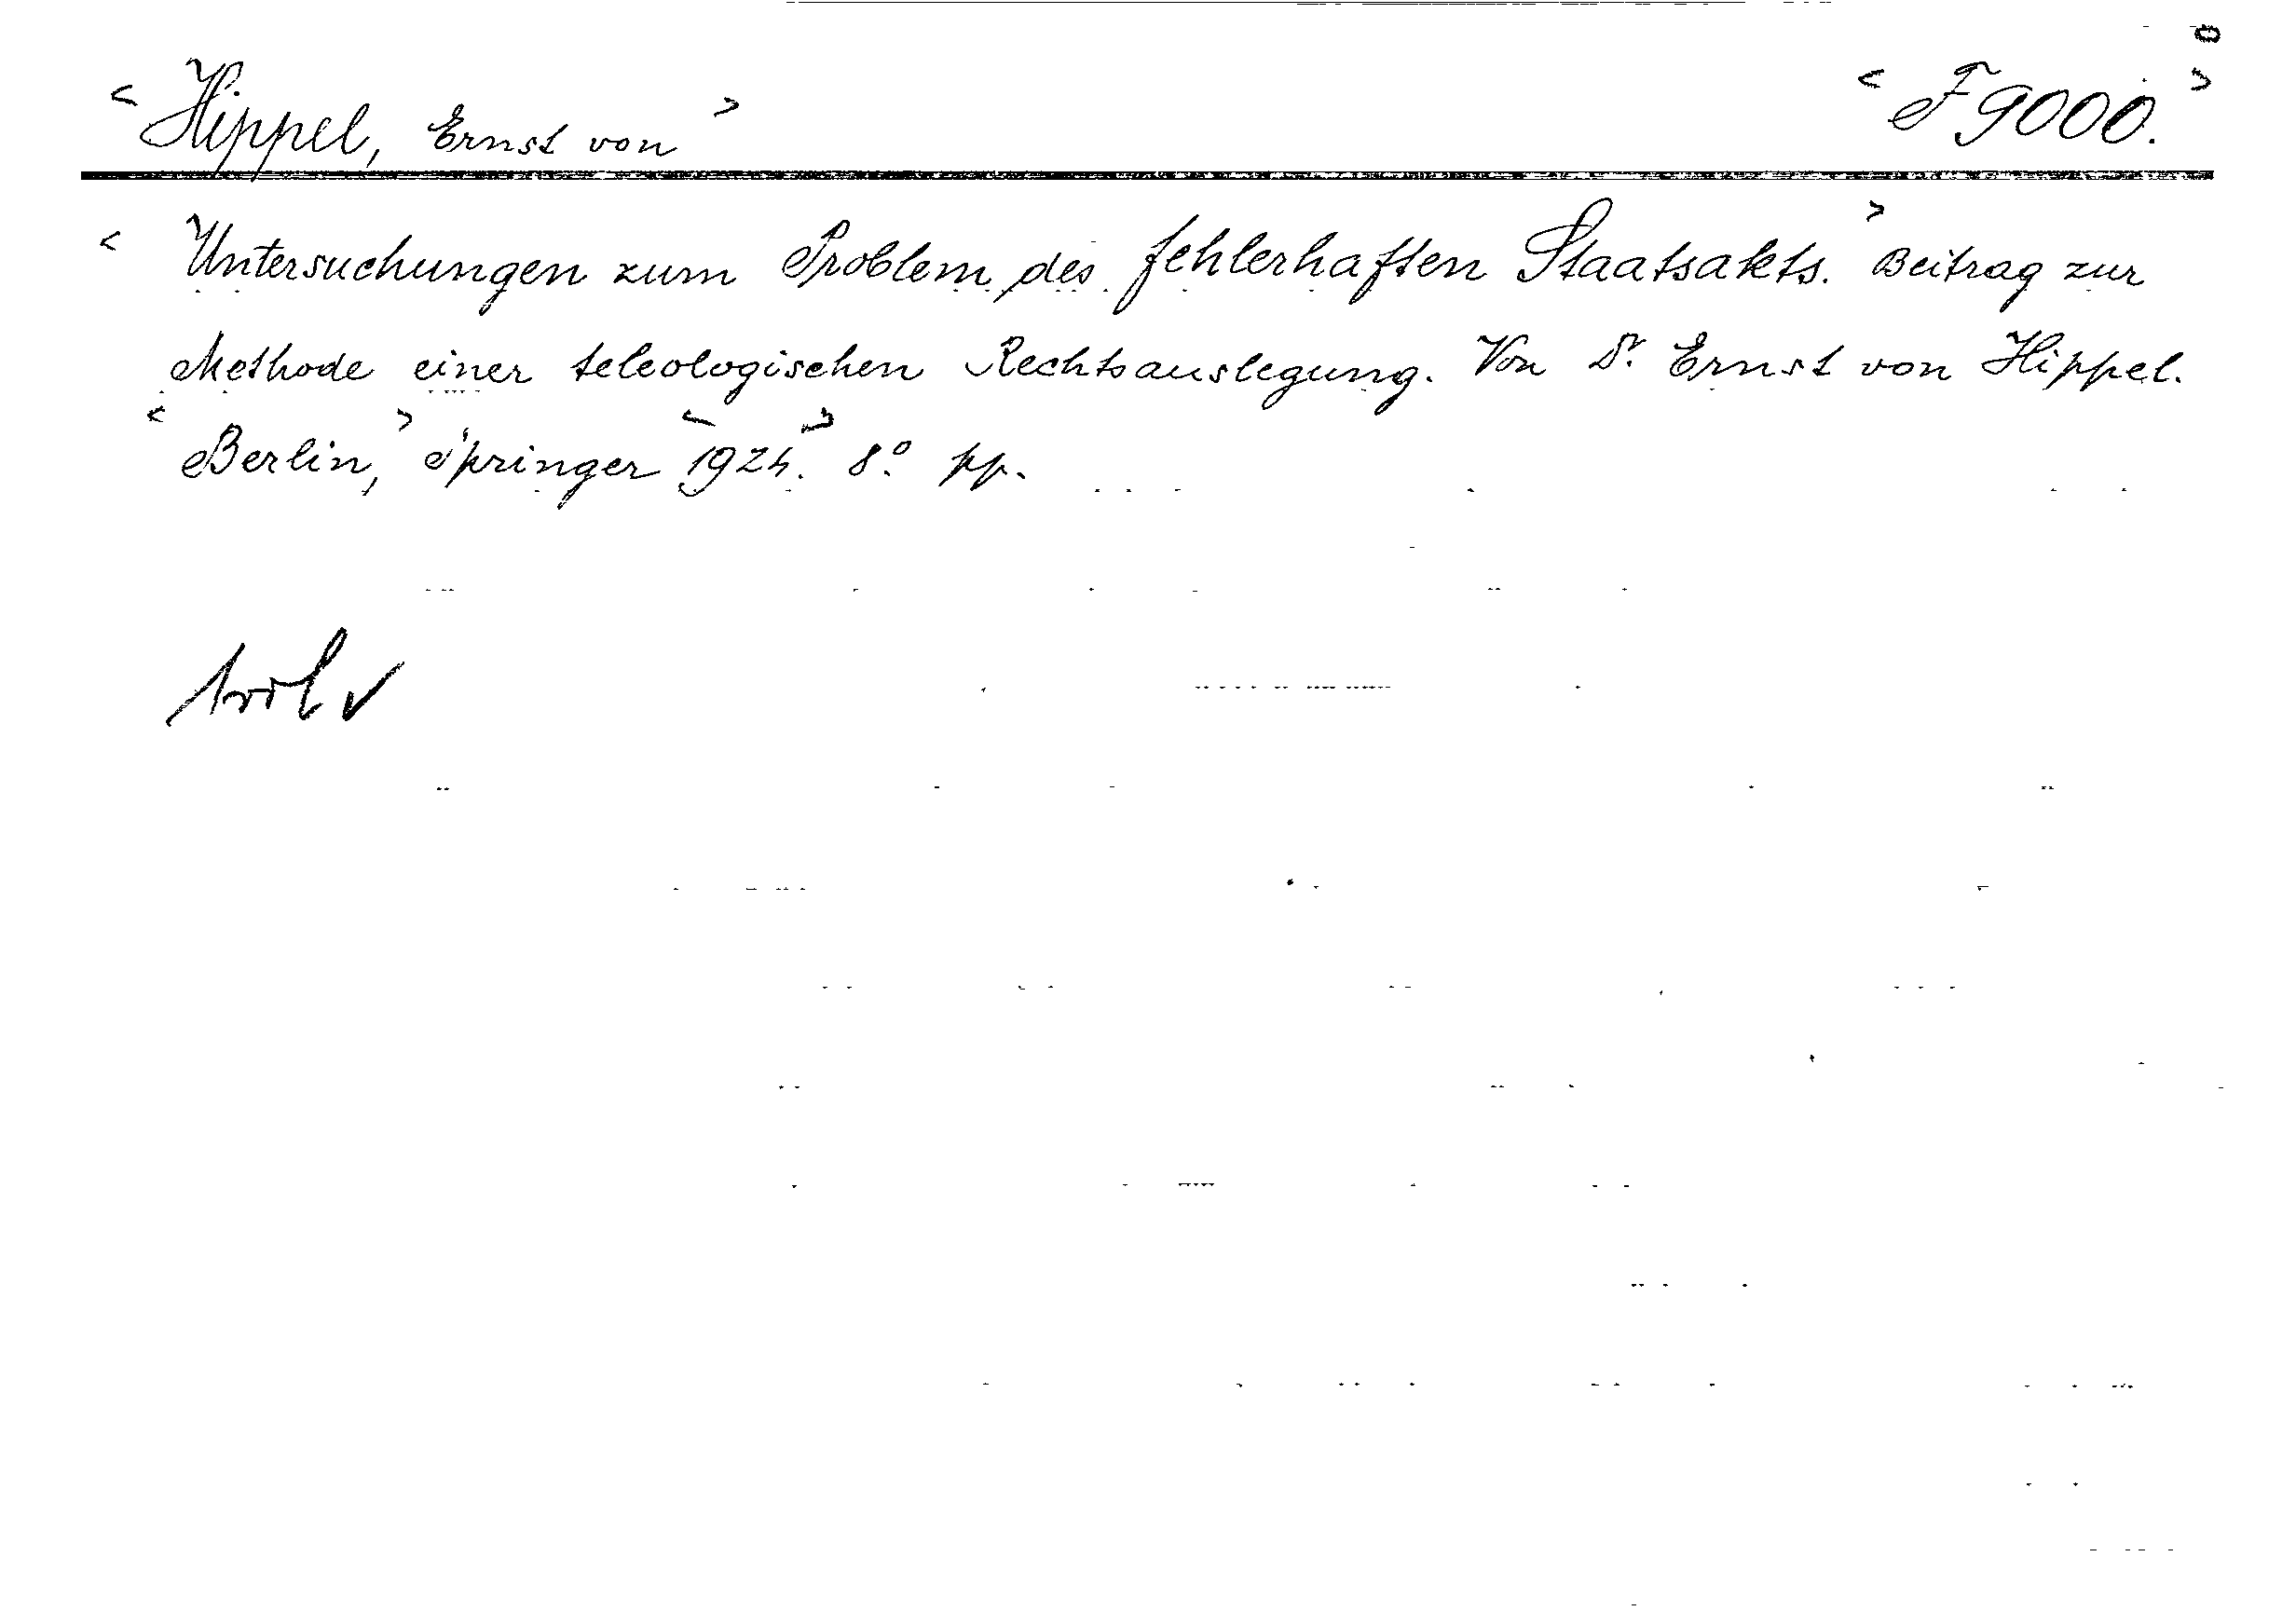 < Hippel, Ernst von > < F 9000. >
< Untersuchungen zum Problem des fehlerhaften Staatsakts. > Beitrag zur
Methode einer teleologischen Rechtsauslegung. Von Dr. Ernst von Hippel.
< Berlin, > Springer < 1924. > 8° pp.